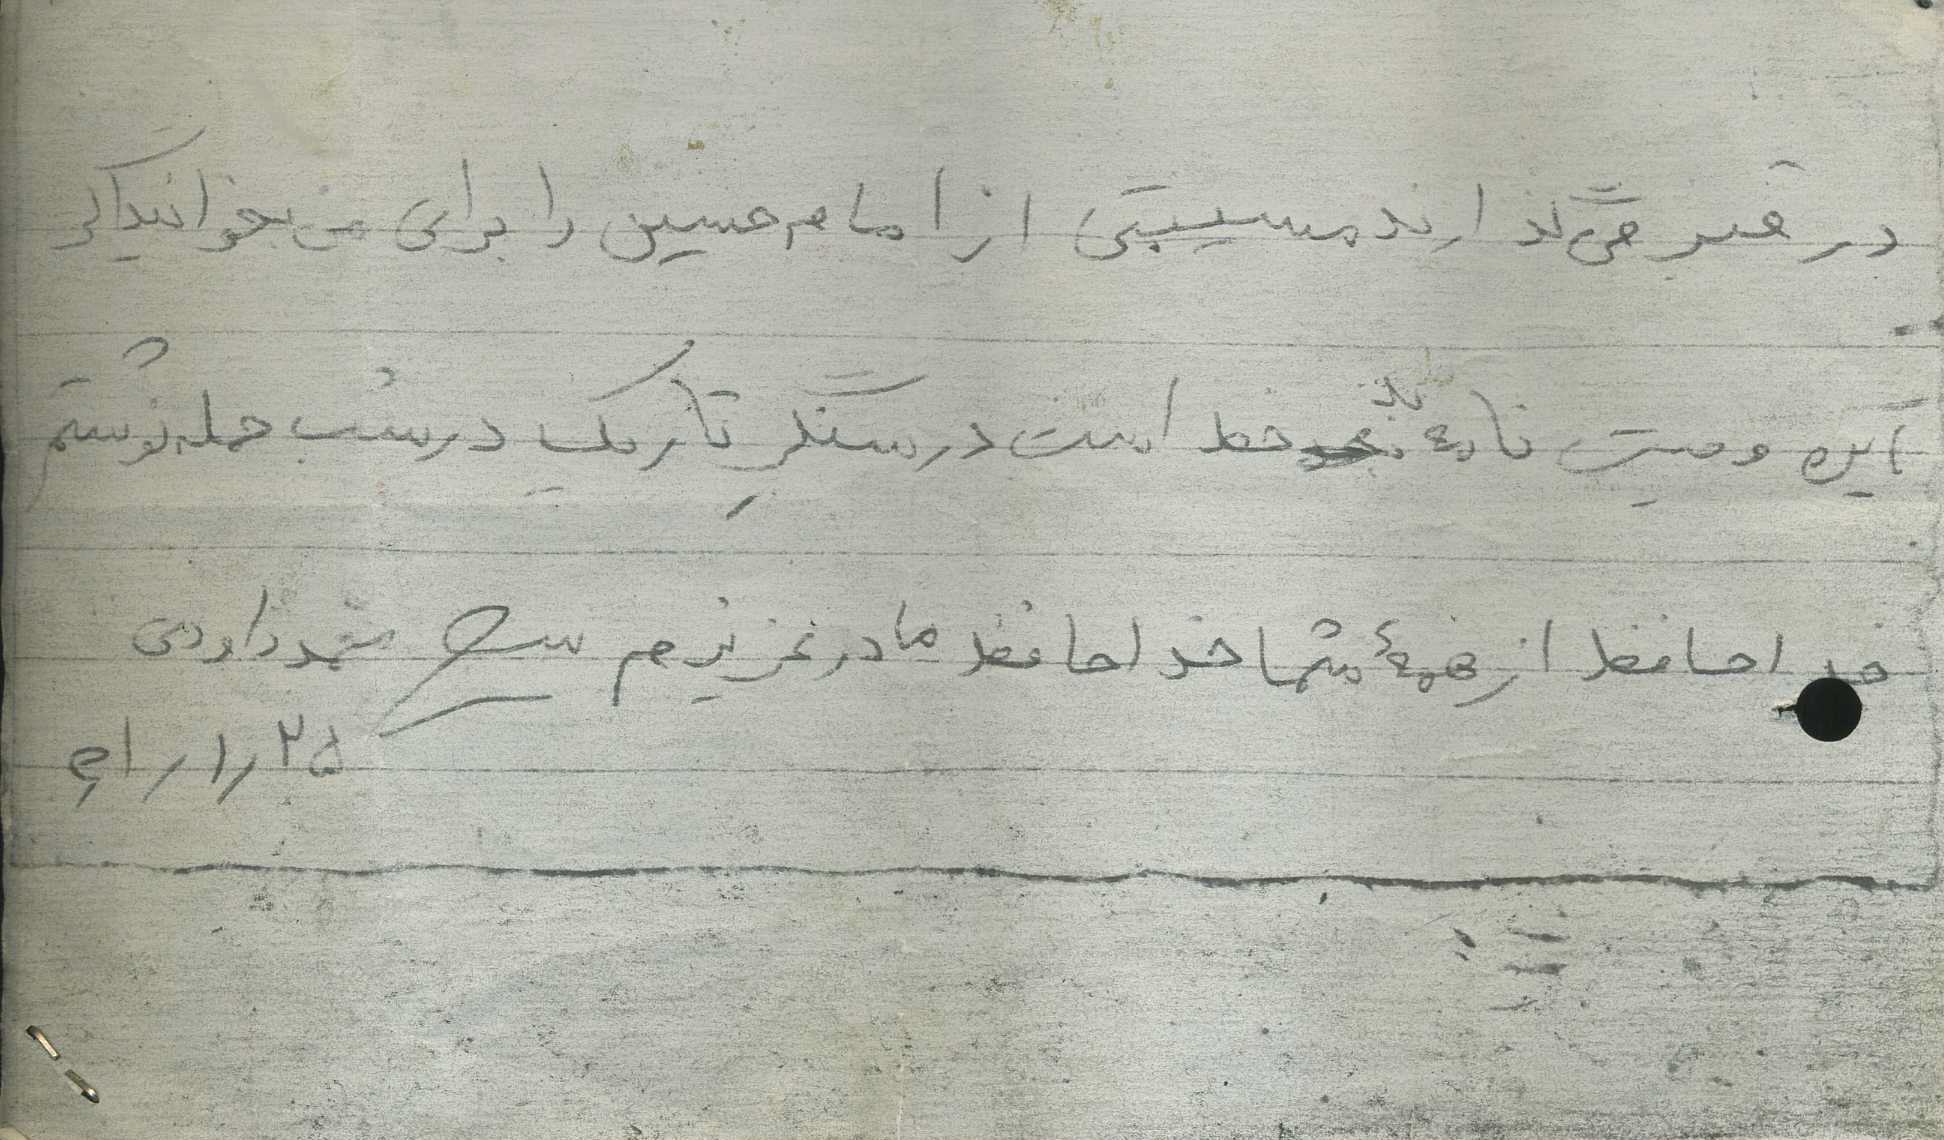 در قبر می‌گذارند مسیبتی از امام حسین را برای من بخوانید اگر
این وصیت نامهٔ بد خط است در سنگر تاریک در شب حمله نوشتم
خداحافظ از همهٔ شما خداحافظ مادر عزیزم محمد داودی
۲۵ ر۱ ر